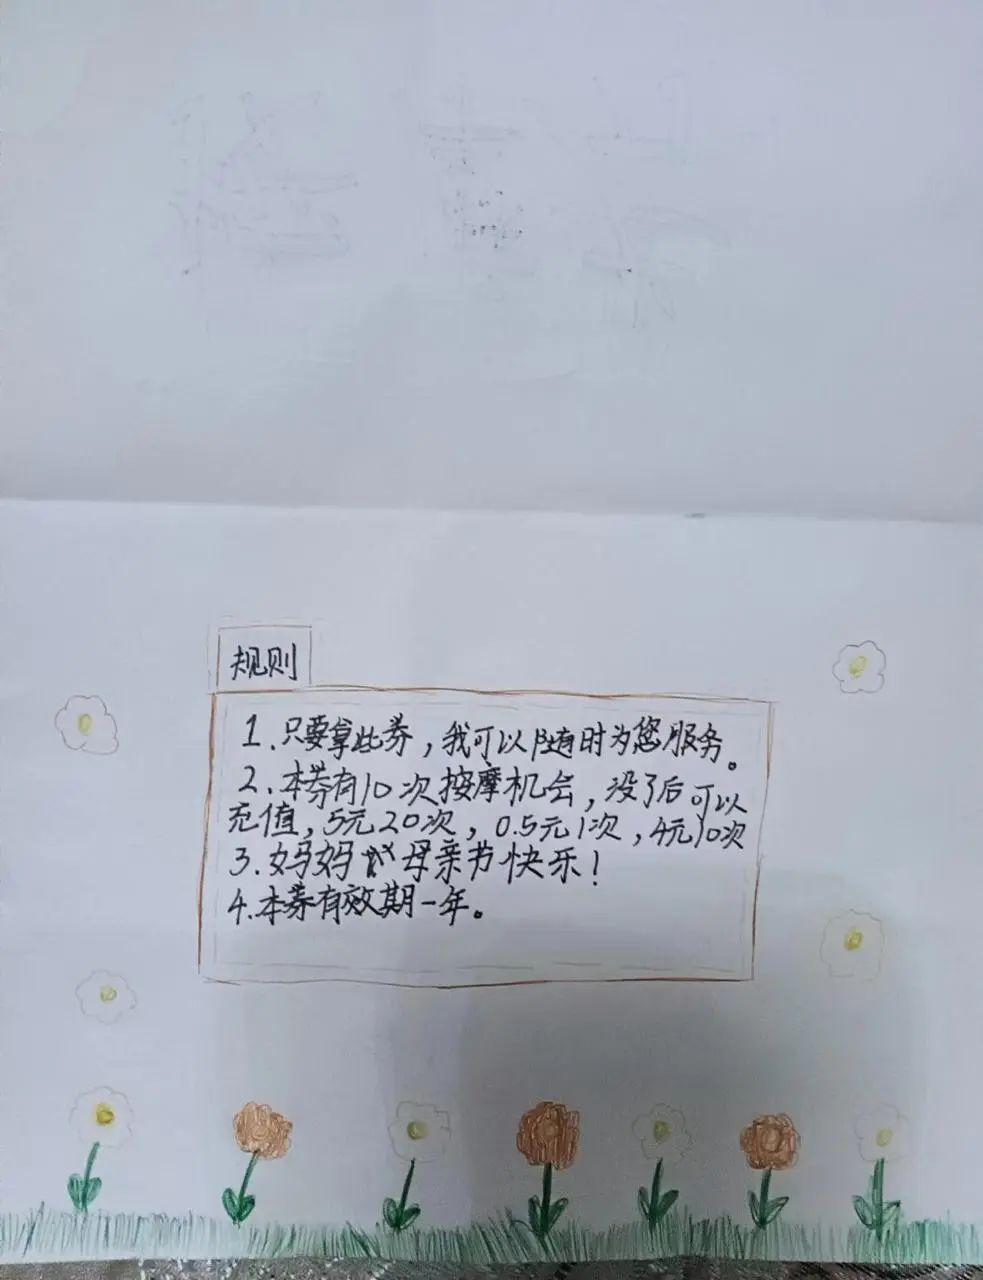 规则
1.只要拿此券，我可以随时为您服务。
2.本券有10次按摩机会，没了后可以
充值，5元20次，0.5元1次，4元10次
3.妈妈母亲节快乐！
4.本券有效期一年。